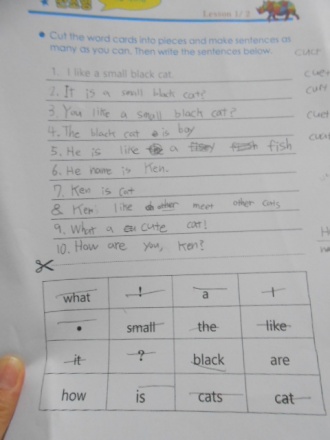 Lesson 1/2
Cut the word cards into pieces and make sentences as
many as you can. Then write the sentences below.
1. I like a small black cat.
2. It is a small black cat?
3. You like a small black cat?
4. The black cat is boy
5. He is like a fish
6. He name is Ken.
7. Ken is cat
8 Ken like meet other cats
9. What a cute cat!
10. How are you, Ken?
what ! a I
. small the like
it ? black are
how is cats cat